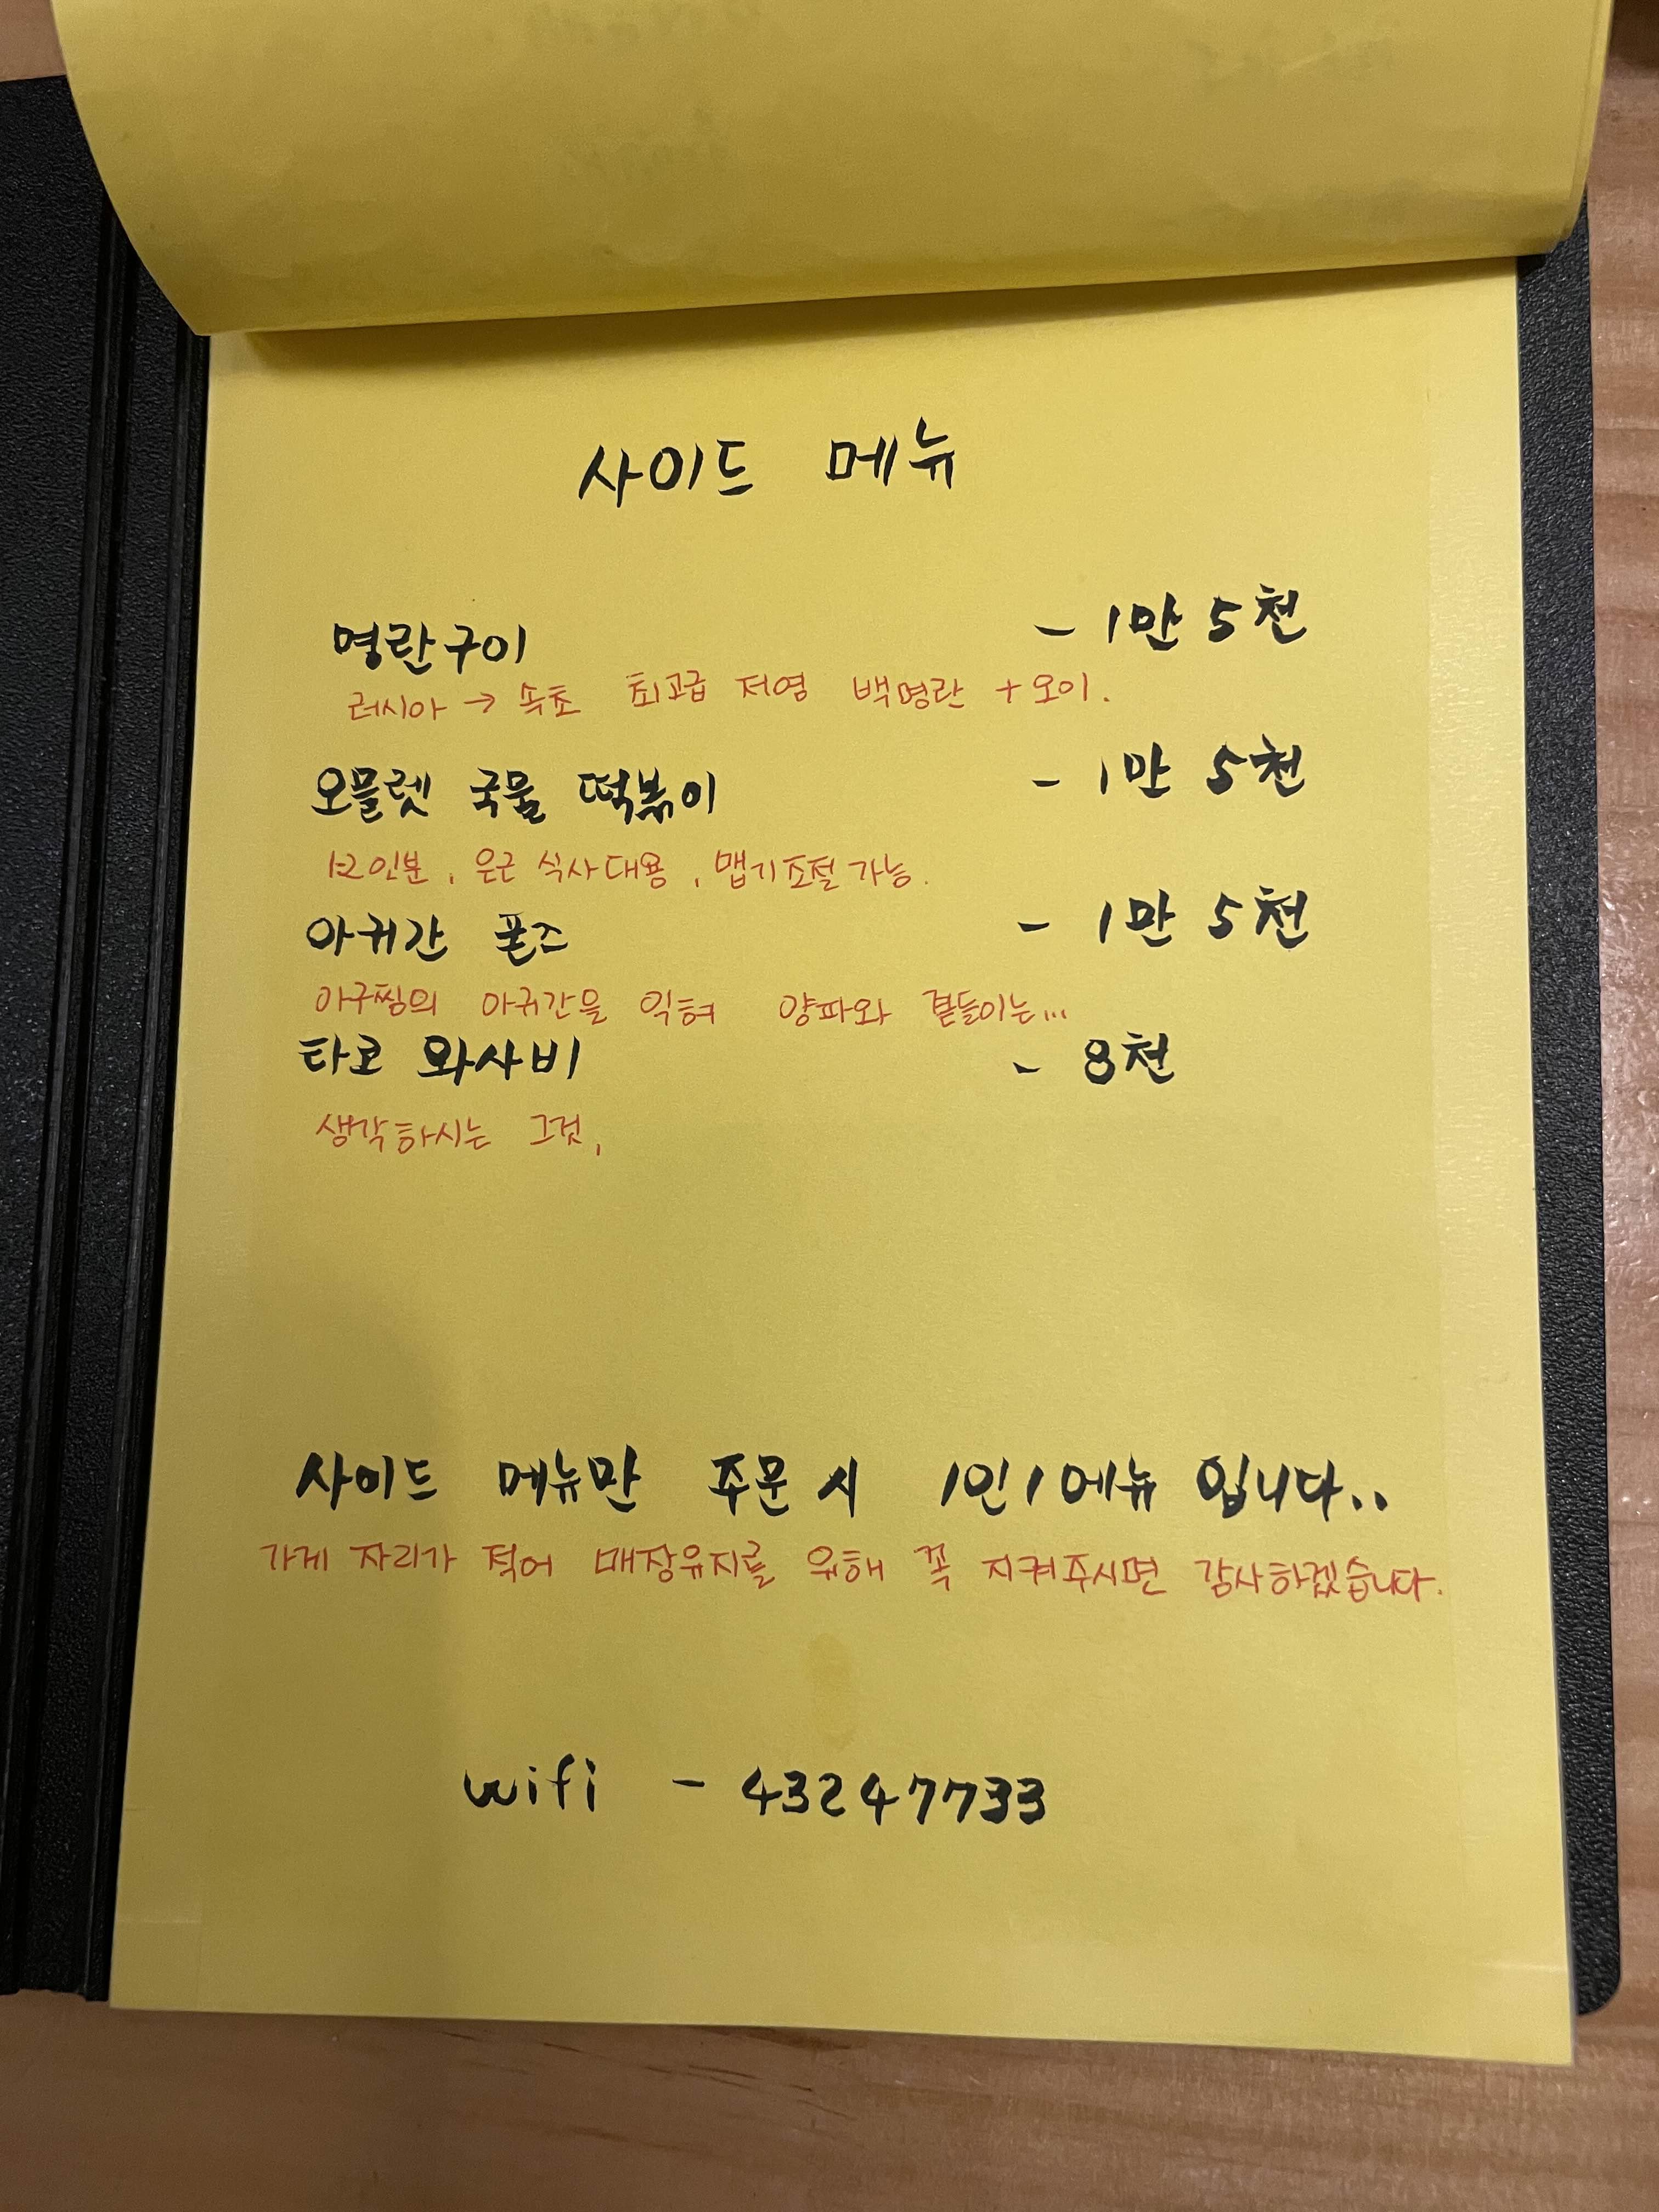 사이드 메뉴
명란구이 - 1만 5천
러시아 → 속초 최고급 저염 백명란 + 오이.
오믈렛 국물 떡볶이 - 1만 5천
1-2인분, 은근 식사대용, 맵기조절가능.
아귀간 폰즈 - 1만 5천
아구찜의 아귀간을 익혀 양파와 곁들이는...
타코 와사비 - 8천
생각하시는 그것,
사이드 메뉴만 주문 시 1인 1메뉴 입니다..
가게 자리가 적어 매장유지를 위해 꼭 지켜주시면 감사하겠습니다.
wifi - 43247733